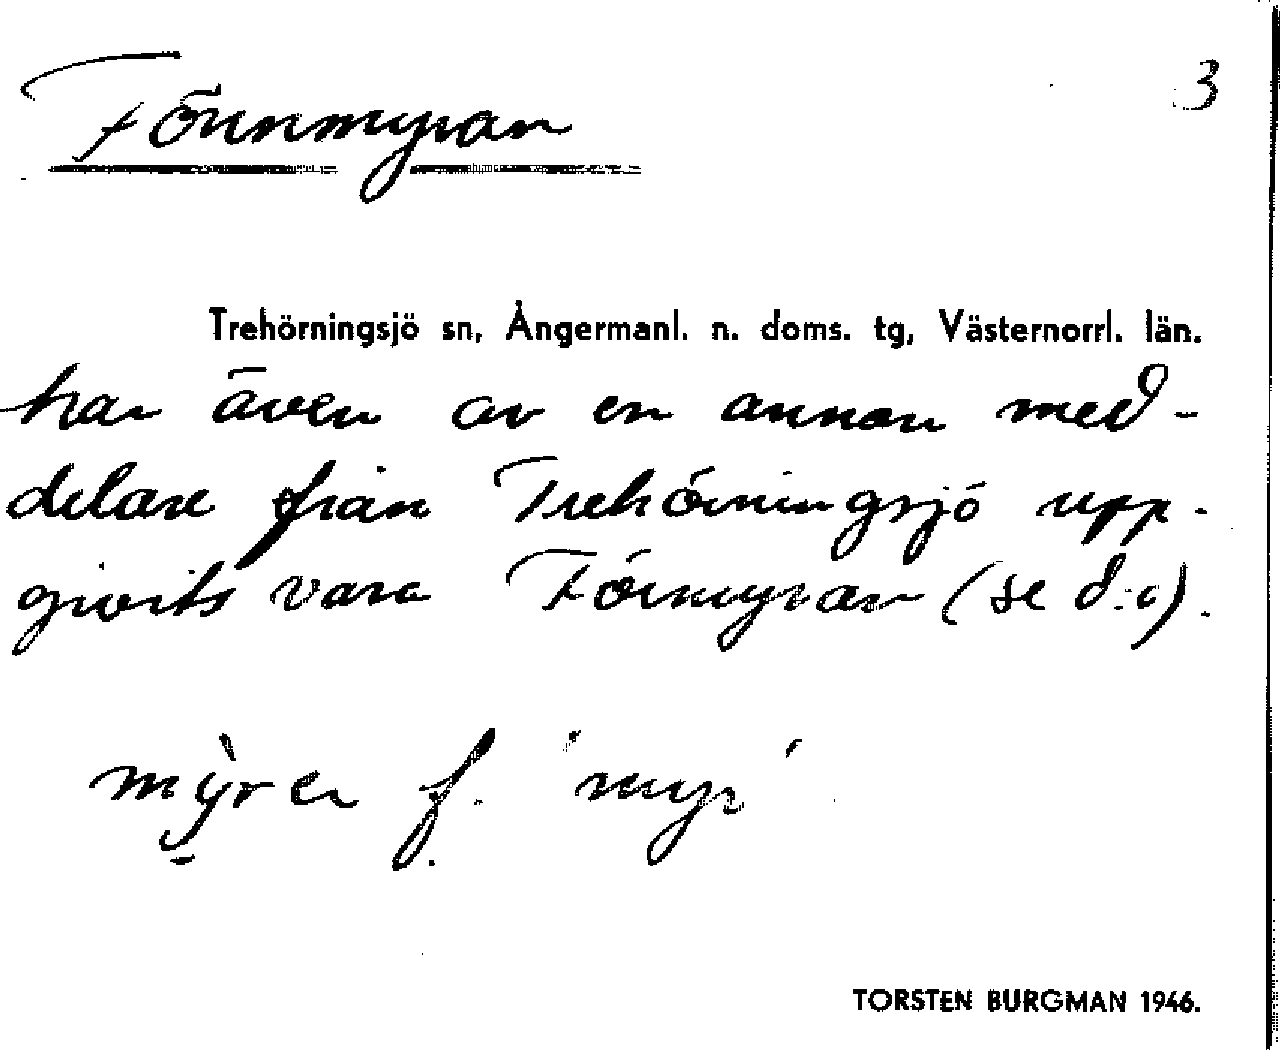 Fönnmyran
3
Trehörningsjö sn, Ångermanl. n. doms. tg, Västernorrl. län.
har även av en annan med-
delare från Trehörningsjö upp-
givits vara Förmyran (se d:o).
mỳren f. 'myr'
TORSTEN BURGMAN 1946.